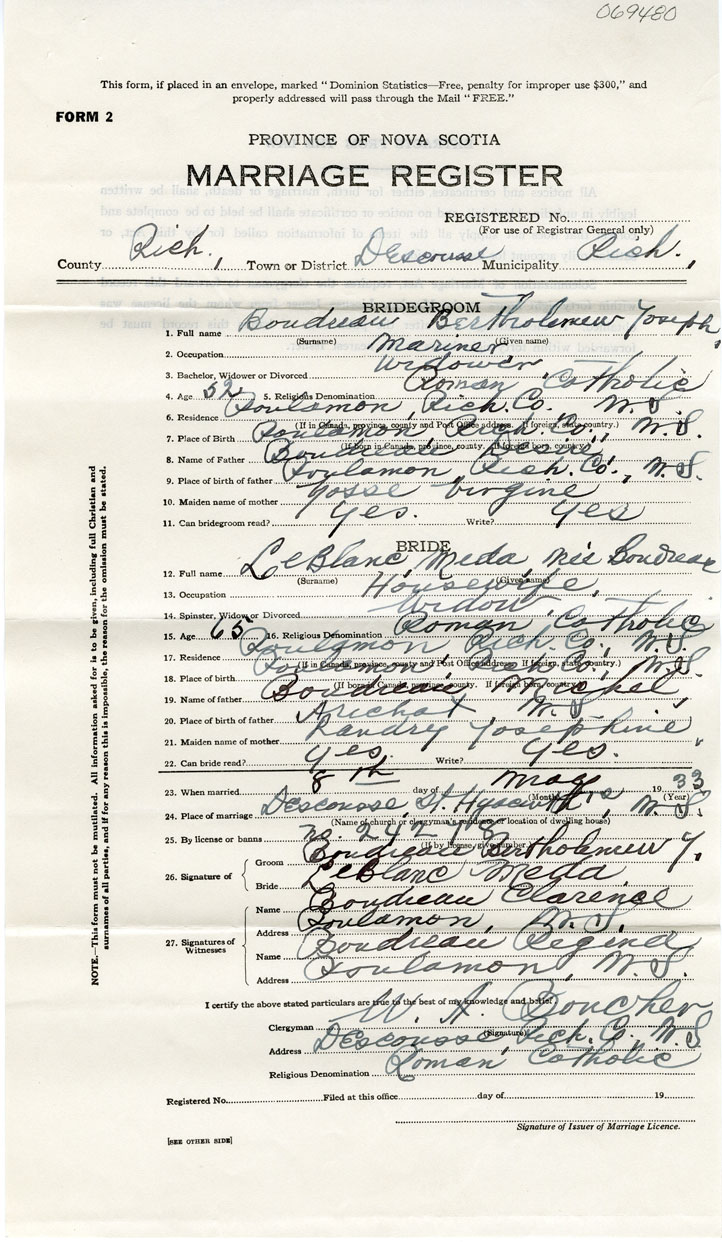 069480
This form, if placed in an envelope, marked " Dominion Statistics—Free, penalty for improper use $300," and
properly addressed will pass through the Mail " FREE."
FORM 2
PROVINCE OF NOVA SCOTIA
MARRIAGE REGISTER
REGISTERED No.
(For use of Registrar General only)
County Rich. Town or District DEscousse Municipality Rich.
BRIDEGROOM
1. Full name Boudreau Bertholemew Joseph
(Surname) (Given name)
2. Occupation Mariner
3. Bachelor, Widower or Divorced Widower
4. Age 52 5. Religious Denomination Roman Catholic
6. Residence Poulamon, Rich. Co. N.S.
(If in Canada, province, county and Post Office address. If foreign, state country.)
7. Place of Birth Poulamon, Rich. Co., N.S.
(If born in Canada, province, county. If foreign born, country.)
8. Name of Father Boudreau
9. Place of birth of father Poulamon, Rich. Co., N.S.
10. Maiden name of mother Josse Virginie
11. Can bridegroom read? Yes. Write? Yes
BRIDE
12. Full name LeBlanc, Meda, née Boudreau
(Surname) (Given name)
13. Occupation Housewife,
14. Spinster, Widow or Divorced Widow
15. Age 65 16. Religious Denomination Roman Catholic
17. Residence Poulamon, Rich. Co., N.S.
(If in Canada, province, county and Post Office address. If foreign, state country.)
18. Place of birth Poulamon, Rich. Co., N.S.
(If born in Canada, province, county. If foreign born, country.)
19. Name of father Boudreau, Michel,
20. Place of birth of father Arichat N.S
21. Maiden name of mother Landry Josephine
22. Can bride read? Yes. Write? Yes.
23. When married 8th day of May 1933
(Month) (Year)
24. Place of marriage Descousse, St. Hyacinth N.S.
(Name of church or clergyman's residence or location of dwelling house)
25. By license or banns no. 242178
(If by license, give number)
26. Signature of
Groom Boudreau Bertholemew J.
Bride LeBlanc Meda
27. Signatures of Witnesses
Name Boudreau Clarence
Address Poulamon, N.S.
Name Boudreau Regina
Address Poulamon, N.S.
I certify the above stated particulars are true to the best of my knowledge and belief.
Clergyman W. A. Boucher
(Signature)
Address DEscousse, Rich. C. N.S
Religious Denomination Roman Catholic
Registered No. Filed at this office day of 19
Signature of Issuer of Marriage Licence.
[SEE OTHER SIDE]
NOTE.—This form must not be mutilated. All information asked for is to be given, including full Christian and
surnames of all parties, and if for any reason this is impossible, the reason for the omission must be stated.